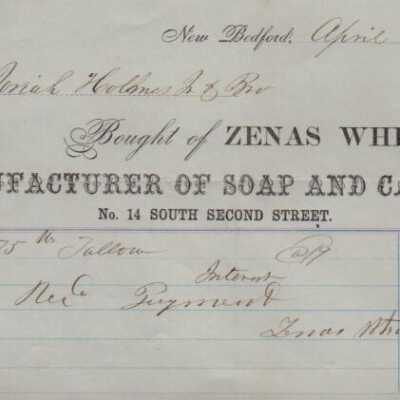 New Bedford, April
Josiah Holmes Jr & Bro
Bought of ZENAS WHI
UFACTURER OF SOAP AND CA
No. 14 SOUTH SECOND STREET.
75 lbs Tallow
Interest
Recd Payment
Zenas Whi